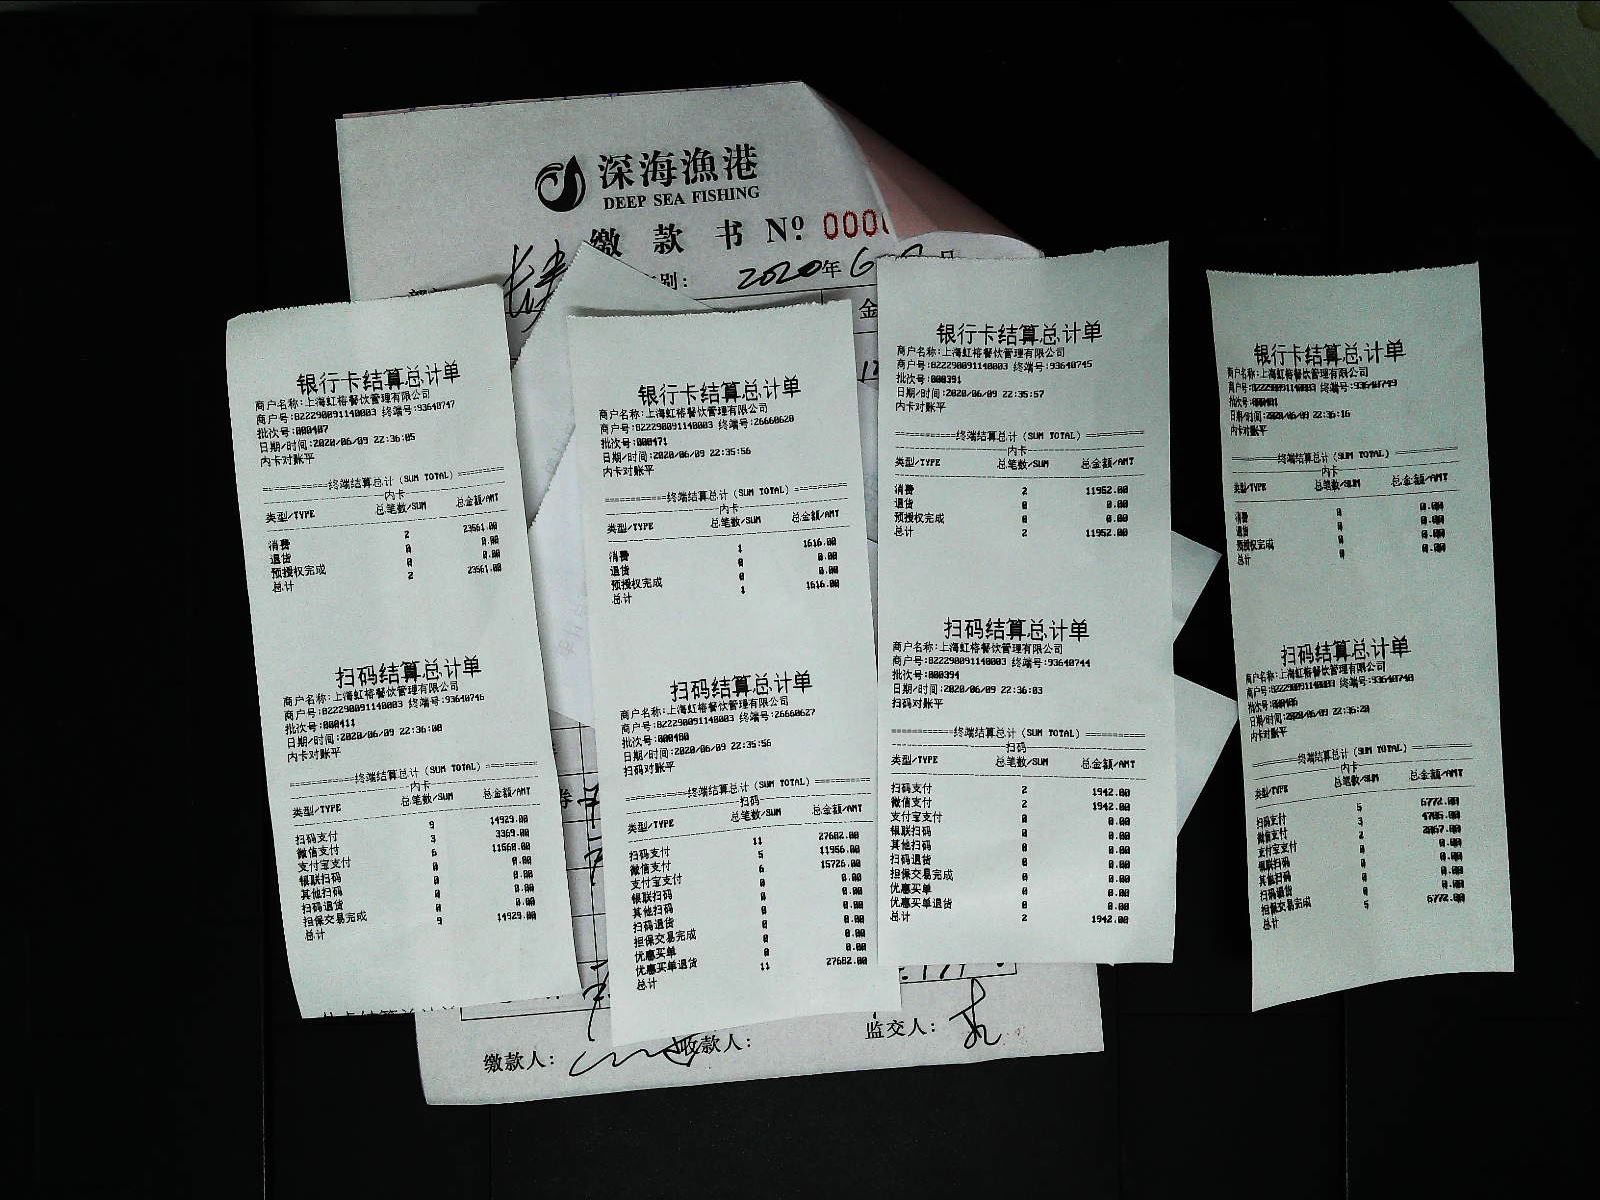 深海漁港
DEEP SEA FISHING
缴 款 书 Nº 000
别: 2020年 6
金
银行卡结算总计单
商户名称:上海虹榕餐饮管理有限公司
商户号:822290091140003 终端号:93640747
批次号:000407
日期/时间:2020/06/09 22:36:05
内卡对账平
===========终端结算总计 (SUM TOTAL) =========
内卡
类型/TYPE 总笔数/SUM 总金额/AMT
消费 2 23561.00
退货 0 0.00
预授权完成 0 0.00
总计 2 23561.00
扫码结算总计单
商户名称:上海虹榕餐饮管理有限公司
商户号:822290091140003 终端号:93640746
批次号:000411
日期/时间:2020/06/09 22:36:00
内卡对账平
===========终端结算总计 (SUM TOTAL) =========
内卡
类型/TYPE 总笔数/SUM 总金额/AMT
扫码支付 9 14929.00
微信支付 3 3369.00
支付宝支付 6 11560.00
银联扫码 0 0.00
其他扫码 0 0.00
扫码退货 0 0.00
担保交易完成 0 0.00
总计 9 14929.00
银行卡结算总计单
商户名称:上海虹榕餐饮管理有限公司
商户号:822290091140003 终端号:26660620
批次号:000471
日期/时间:2020/06/09 22:35:56
内卡对账平
===========终端结算总计 (SUM TOTAL) =========
内卡
类型/TYPE 总笔数/SUM 总金额/AMT
消费 1 1616.00
退货 0 0.00
预授权完成 0 0.00
总计 1 1616.00
扫码结算总计单
商户名称:上海虹榕餐饮管理有限公司
商户号:822290091140003 终端号:26660627
批次号:000480
日期/时间:2020/06/09 22:35:56
扫码对账平
===========终端结算总计 (SUM TOTAL) =========
扫码
类型/TYPE 总笔数/SUM 总金额/AMT
扫码支付 11 27682.00
微信支付 5 11956.00
支付宝支付 6 15726.00
银联扫码 0 0.00
其他扫码 0 0.00
扫码退货 0 0.00
担保交易完成 0 0.00
优惠买单 0 0.00
优惠买单退货 0 0.00
总计 11 27682.00
银行卡结算总计单
商户名称:上海虹榕餐饮管理有限公司
商户号:822290091140003 终端号:93640745
批次号:000391
日期/时间:2020/06/09 22:35:57
内卡对账平
===========终端结算总计 (SUM TOTAL) =========
内卡
类型/TYPE 总笔数/SUM 总金额/AMT
消费 2 11952.00
退货 0 0.00
预授权完成 0 0.00
总计 2 11952.00
扫码结算总计单
商户名称:上海虹榕餐饮管理有限公司
商户号:822290091140003 终端号:93640744
批次号:000394
日期/时间:2020/06/09 22:36:03
扫码对账平
===========终端结算总计 (SUM TOTAL) =========
扫码
类型/TYPE 总笔数/SUM 总金额/AMT
扫码支付 2 1942.00
微信支付 2 1942.00
支付宝支付 0 0.00
银联扫码 0 0.00
其他扫码 0 0.00
扫码退货 0 0.00
担保交易完成 0 0.00
优惠买单 0 0.00
优惠买单退货 0 0.00
总计 2 1942.00
银行卡结算总计单
商户名称:上海虹榕餐饮管理有限公司
商户号:822290091140003 终端号:93640749
批次号:000401
日期/时间:2020/06/09 22:36:16
内卡对账平
===========终端结算总计 (SUM TOTAL) =========
内卡
类型/TYPE 总笔数/SUM 总金额/AMT
消费 0 0.00
退货 0 0.00
预授权完成 0 0.00
总计 0 0.00
扫码结算总计单
商户名称:上海虹榕餐饮管理有限公司
商户号:822290091140003 终端号:93640748
日期/时间:2020/06/09 22:36:20
内卡对账平
===========终端结算总计 (SUM TOTAL) =========
内卡
类型/TYPE 总笔数/SUM 总金额/AMT
扫码支付 5 6772.00
微信支付 3 4705.00
支付宝支付 2 2067.00
银联扫码 0 0.00
其他扫码 0 0.00
扫码退货 0 0.00
担保交易完成 0 0.00
总计 5 6772.00
券
缴款人: 收款人: 监交人: